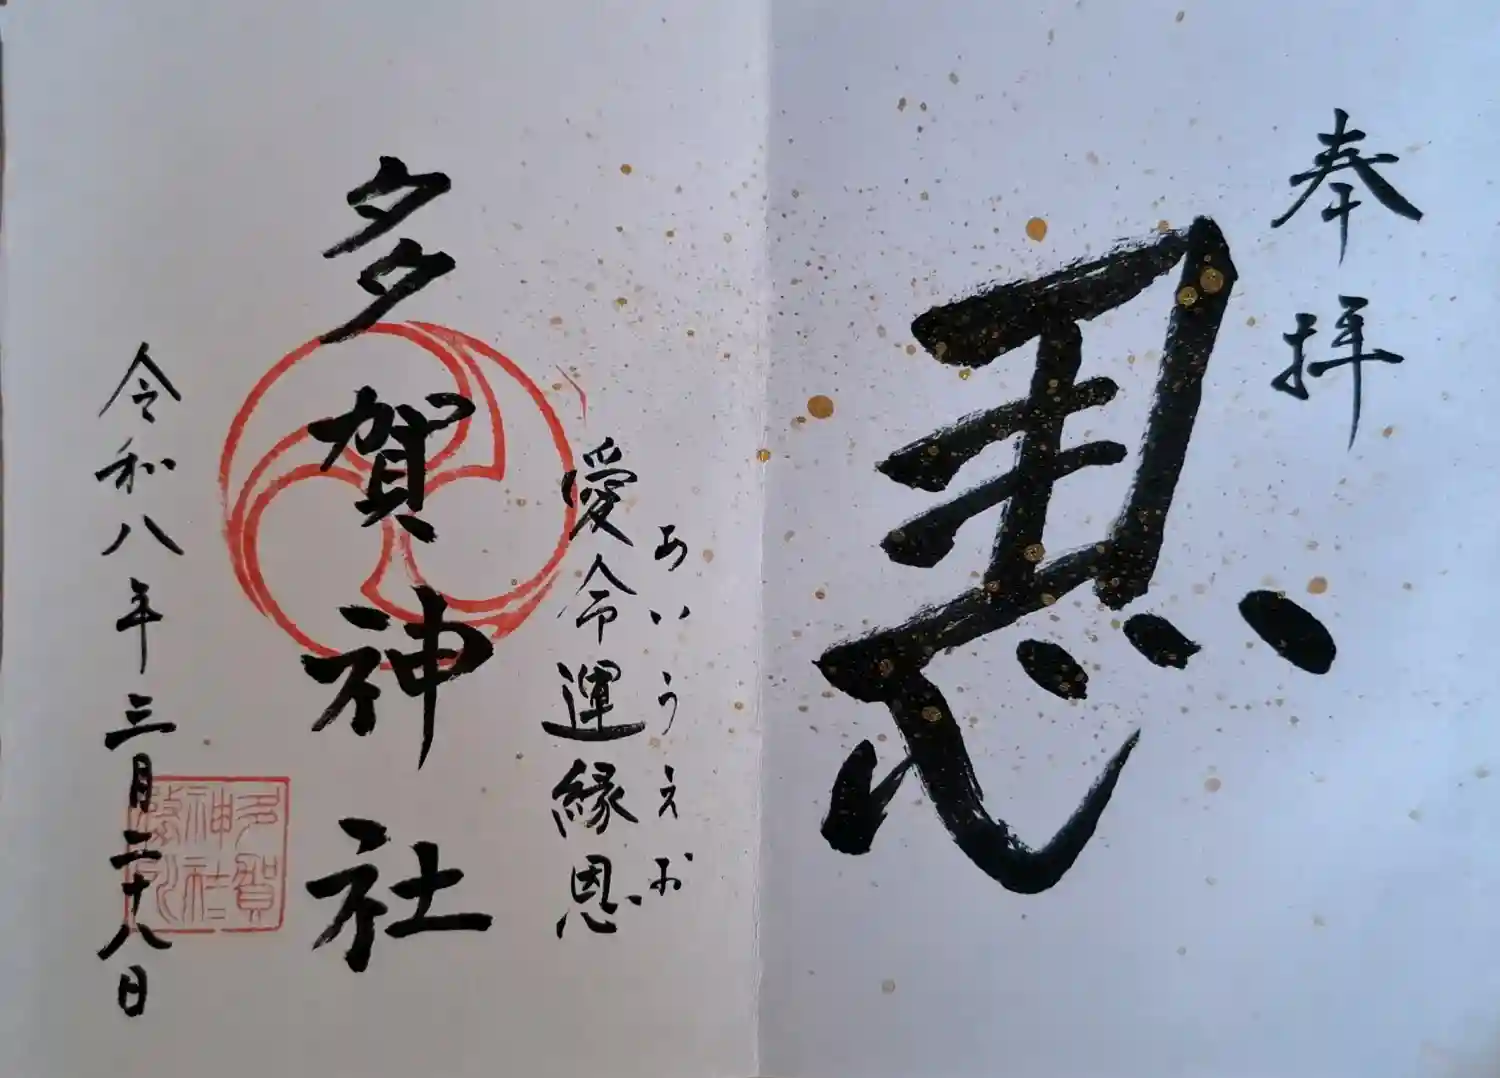 奉拝
恩
あいうえお
愛命運縁恩
多賀神社
令和八年三月二十八日
多賀
神社